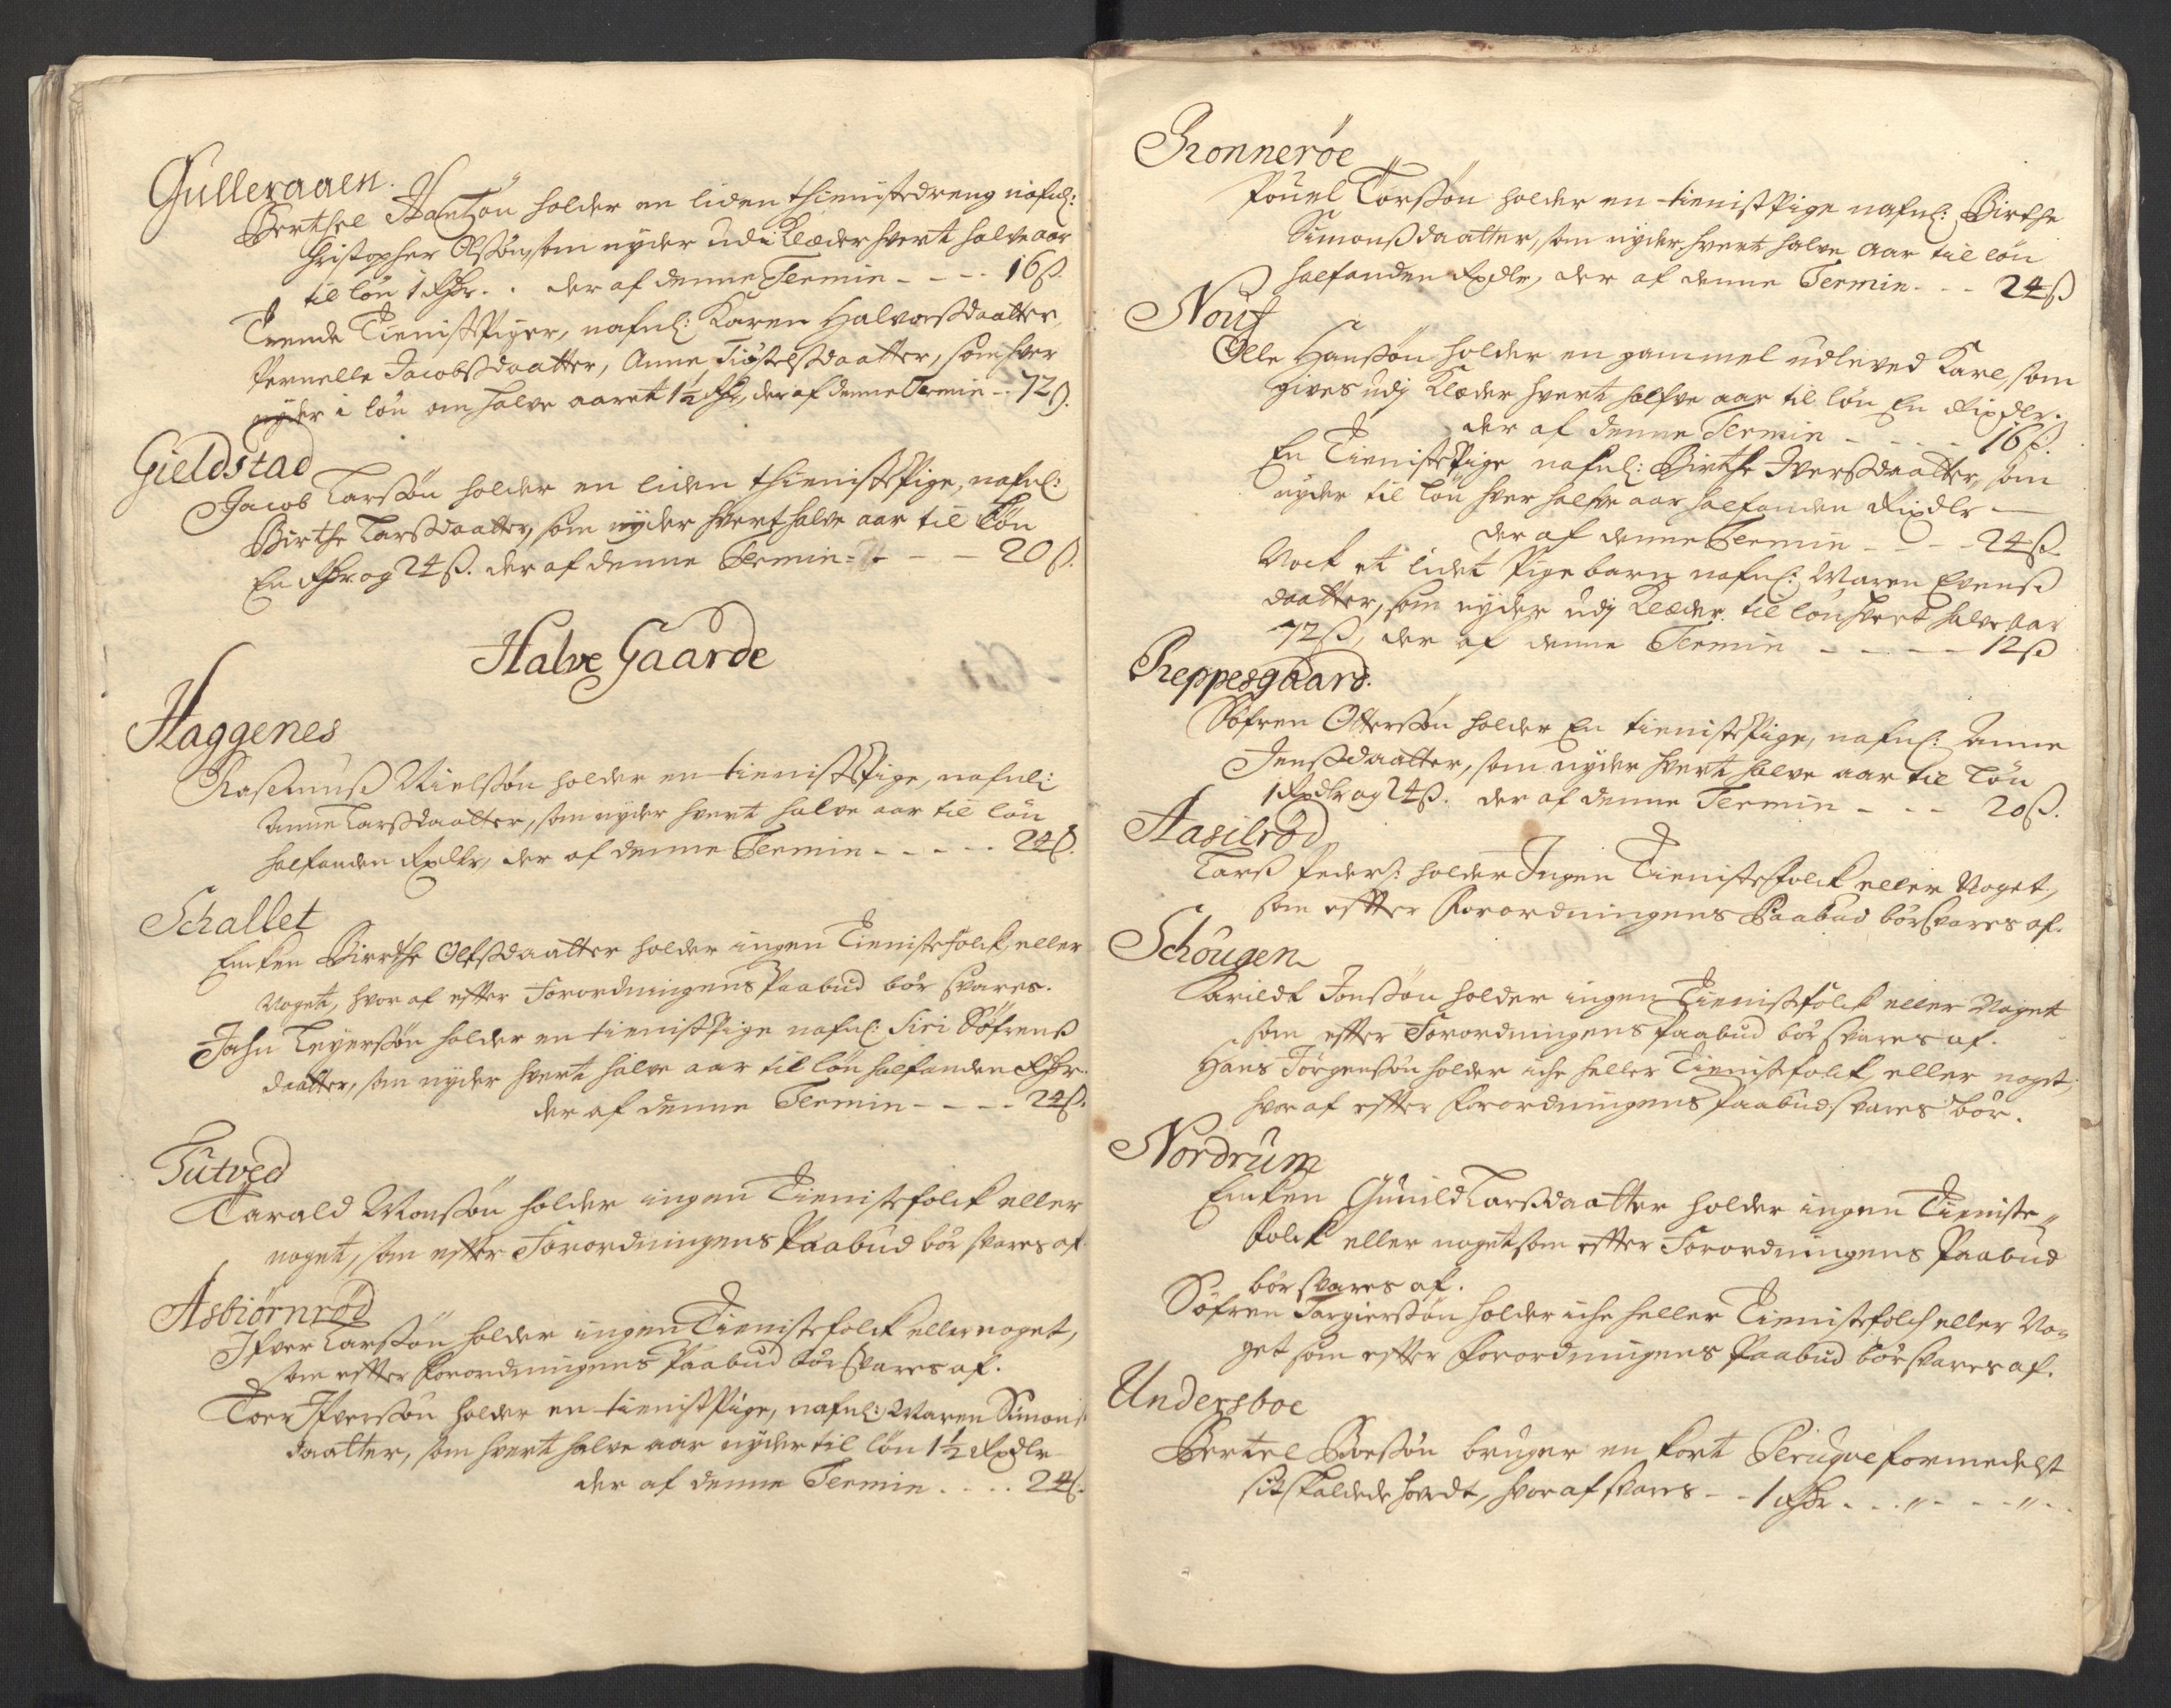 Gulleraaen.
Berthel Hantzøn holder en liden thienistedreng nafnl:
Christopher Olssøn, som nyder udi Klæder hvert halve aar
til løn 1 Rdr. . der af denne Termin - - - 16 ß.
Trende Tieniste Piger, nafnl: Karen Halvorsdaatter,
Pernelle Jacobsdaatter, Anne Kiøstelsdaatter, som hver
nyder i løn om halve aaret 1½ Rdr, der af denne Termin - 72 ß.
Gieldstad
Jacob Larssøn holder en liden thieniste Pige, nafnl:
Birthe Larsdaatter, som nyder hvert halve aar til Løn
En Rdr og 24 ß. der af denne Termin - - - 20 ß.
Halve Gaarde
Haggenes
Rasmuus Nielssøn holder en tieniste Pige, nafnl:
Anne Larsdaatter, som nyder hvert halve aar til løn
halfanden Rxdlr, der af denne Termin - - - - - 24 ß.
Schallet
Encken Birrthe Olfsdaatter holder ingen Tienistefolck, eller
Noget, hvor af effter Forordningens Paabud bør svares.
Jahn Leyerssøn holder en tieniste Pige nafnl: Siri Søfrens
daatter, som nyder hvert halve aar til løn halfanden Rdr.
der af denne Termin - - - - 24 ß.
Tutved
Tarald Monssøn holder ingen Tienistefolck eller
noget, som effter Forordningens Paabud bør svares af.
Asbiørnrød
Ifver Larssøn holder ingen Tienistefolck eller noget,
som effter Forordningens Paabud bør svares af.
Toer Ifverssøn holder en tieniste Pige, nafnl: Maren Simons
daatter, som hvert halve aar nyder til løn 1½ Rxdlr
der af denne Termin . . . . 24 ß.
Ronnerøe
Pouel Torssøn holder en tieniste Pige nafnl: Birthe
Simonsdaatter, som nyder hvert halve aar til løn
halfanden Rxdlr, der af denne Termin - - - 24 ß
Nouf
Olle Hanssøn holder en gammel udleved Karl, som
gives udj Klæder hvert halfve aar til løn En Rixdlr.
der af denne Termin - - - - 16 ß.
En Tieniste Pige nafnl: Birthe Iversdaatter, som
nyder til løn hver halfve aar halfanden Rixdlr -
der af denne Termin - - - 24 ß.
Nock et lidet Pige barn nafnl: Maren Evens
daatter, som nyder udj Klæder til løn hvert halve aar
72 ß, der af denne Termin - - - - - 12 ß
Reppesgaard.
Søfren Otterssøn holder En tieniste Pige, nafnl: Anne
Jensdaatter, som nyder hvert halve aar til løn
1 Rxdlr og 24 ß. der af denne Termin - - - 20 ß.
Aasilrød
Lars Peders: holder Ingen Tienistefolck eller Noget,
som effter Forordningens Paabud bør svares af.
Schougen
Tarildt Jonssøn holder ingen Tienistefolck eller Noget
som effter Forordningens Paabud bør svares af.
Hans Jørgenssøn holder iche heller Tienistefolck eller noget,
hvor af effter Forordningens Paabud svares bør.
Nordrum
Encken Gunild Larsdaatter holder ingen Tieniste-
folck eller noget som effter Forordningens Paabud
bør svares af.
Søfren Torgierssøn holder iche heller Tienistefolch eller No-
get som effter Forordningens Paabud bør svares af.
Undersboe
Bertel Boessøn bruger en kort Peruqve formedelst
sit skaldede hovedt, hvor af svares - - 1 Rdr - - - " - - - " - -